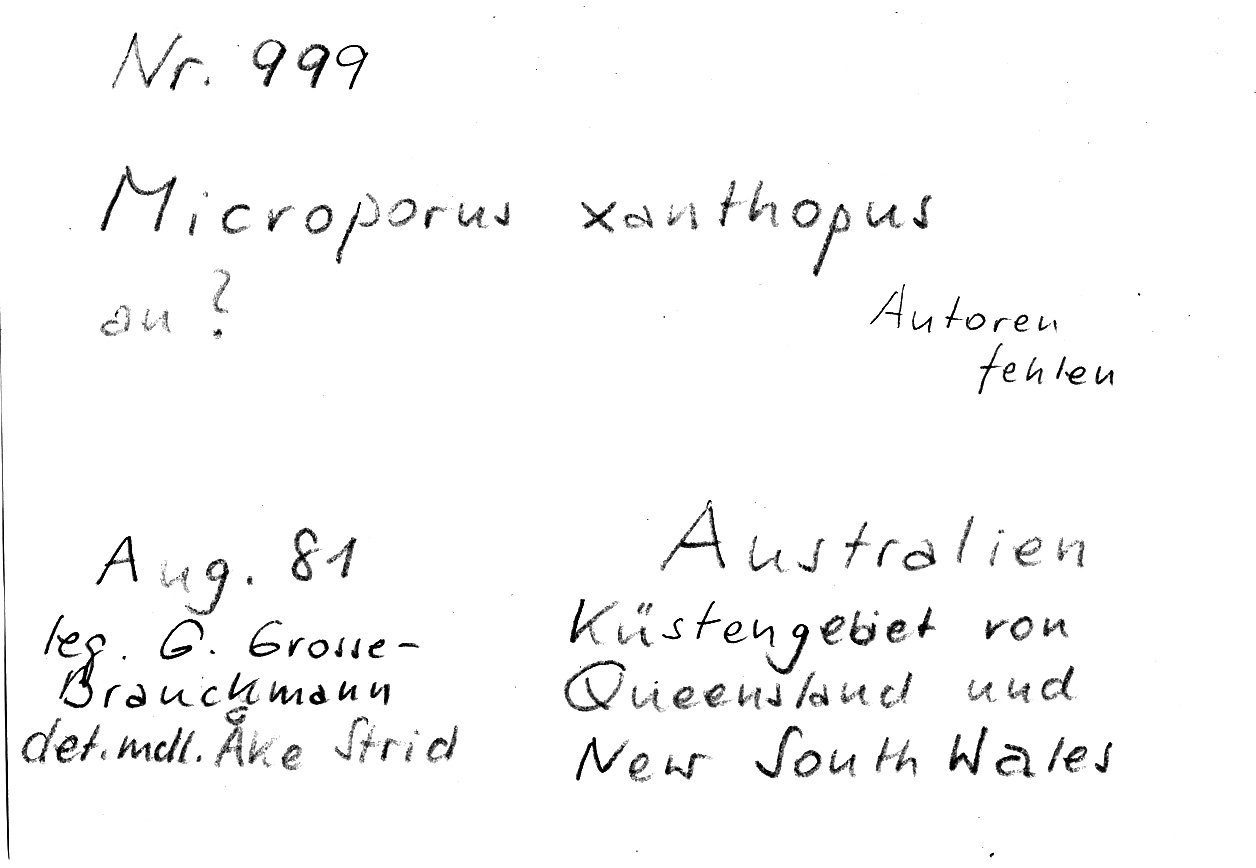 Nr. 999
Microporus xanthopus
an ?
Autoren
fehlen
Aug. 81
leg. G. Grosse-
Brauckmann
det. mdl. Åke Strid
Australien
Küstengebiet von
Queensland und
New South Wales